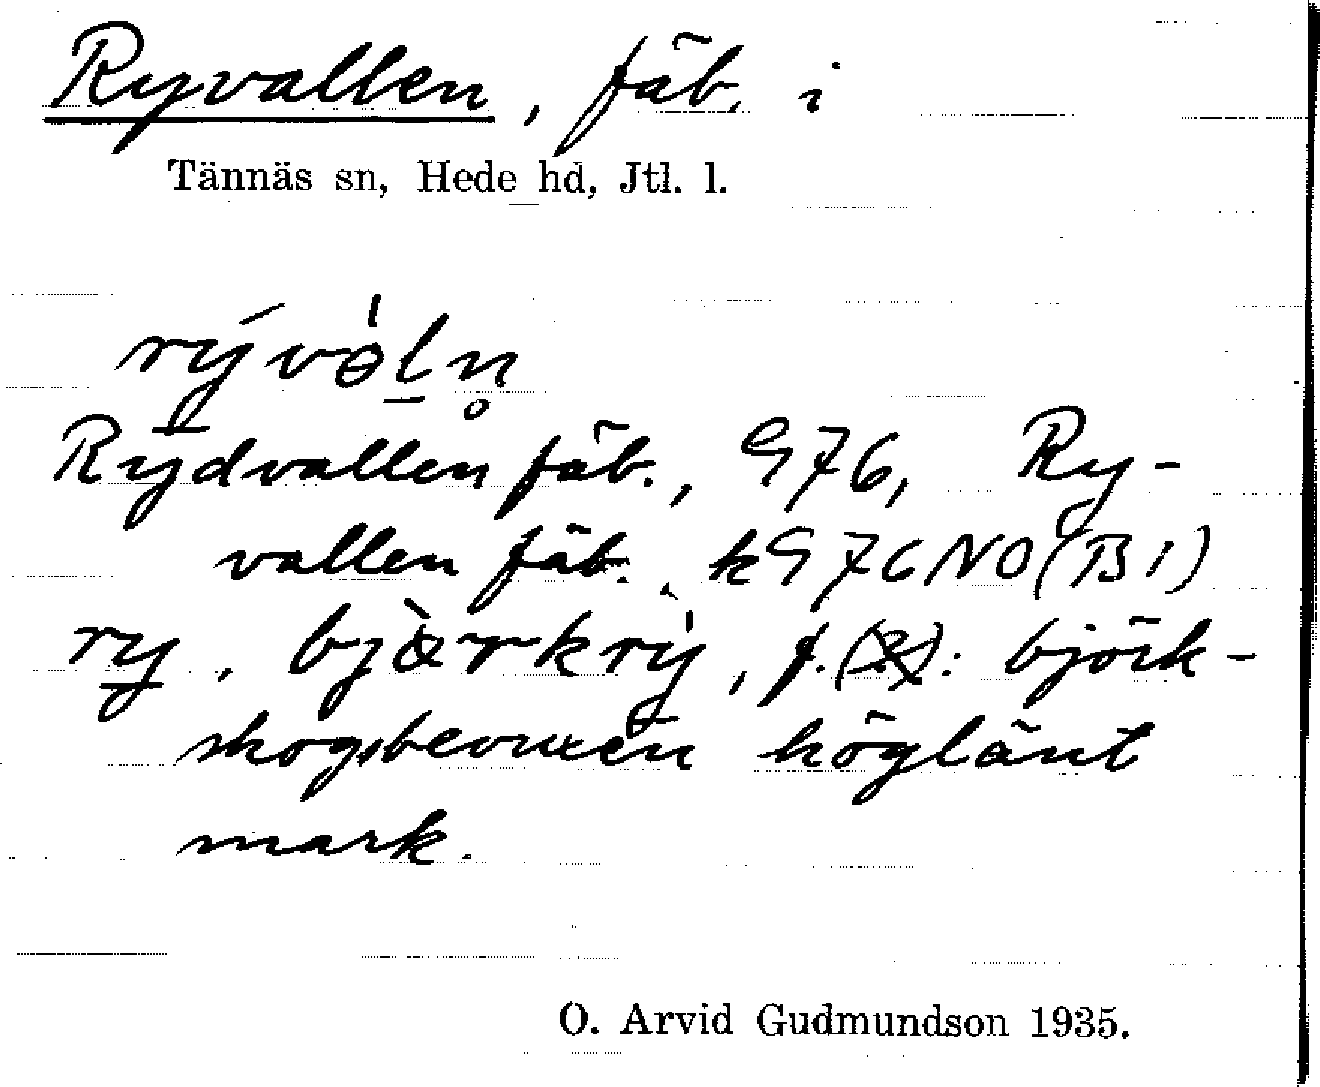 Ryvallen, fäb. i
Tännäs sn, Hede hd, Jtl. l.
rývə̀ḻn̥
Rydvallen fäb., G76, Ry-
vallen fäb. kG76NO(B1)
ry, bjàrkrỳ, f.: björk-
skogsbevuxen höglänt
mark.
O. Arvid Gudmundson 1935.